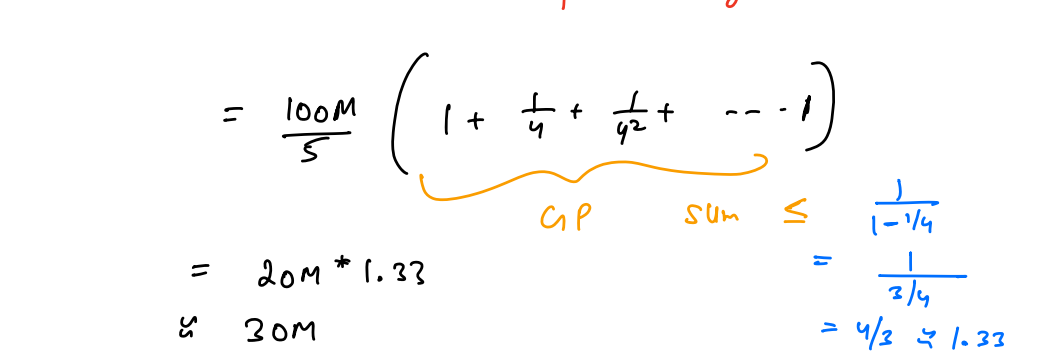 = 100M/5 ( 1 + 1/4 + 1/4² + -- - 1 )
GP sum ≤ 1/(1-1/4)
= 1/(3/4)
= 4/3 ≈ 1.33
= 20M * 1.33
≈ 30M